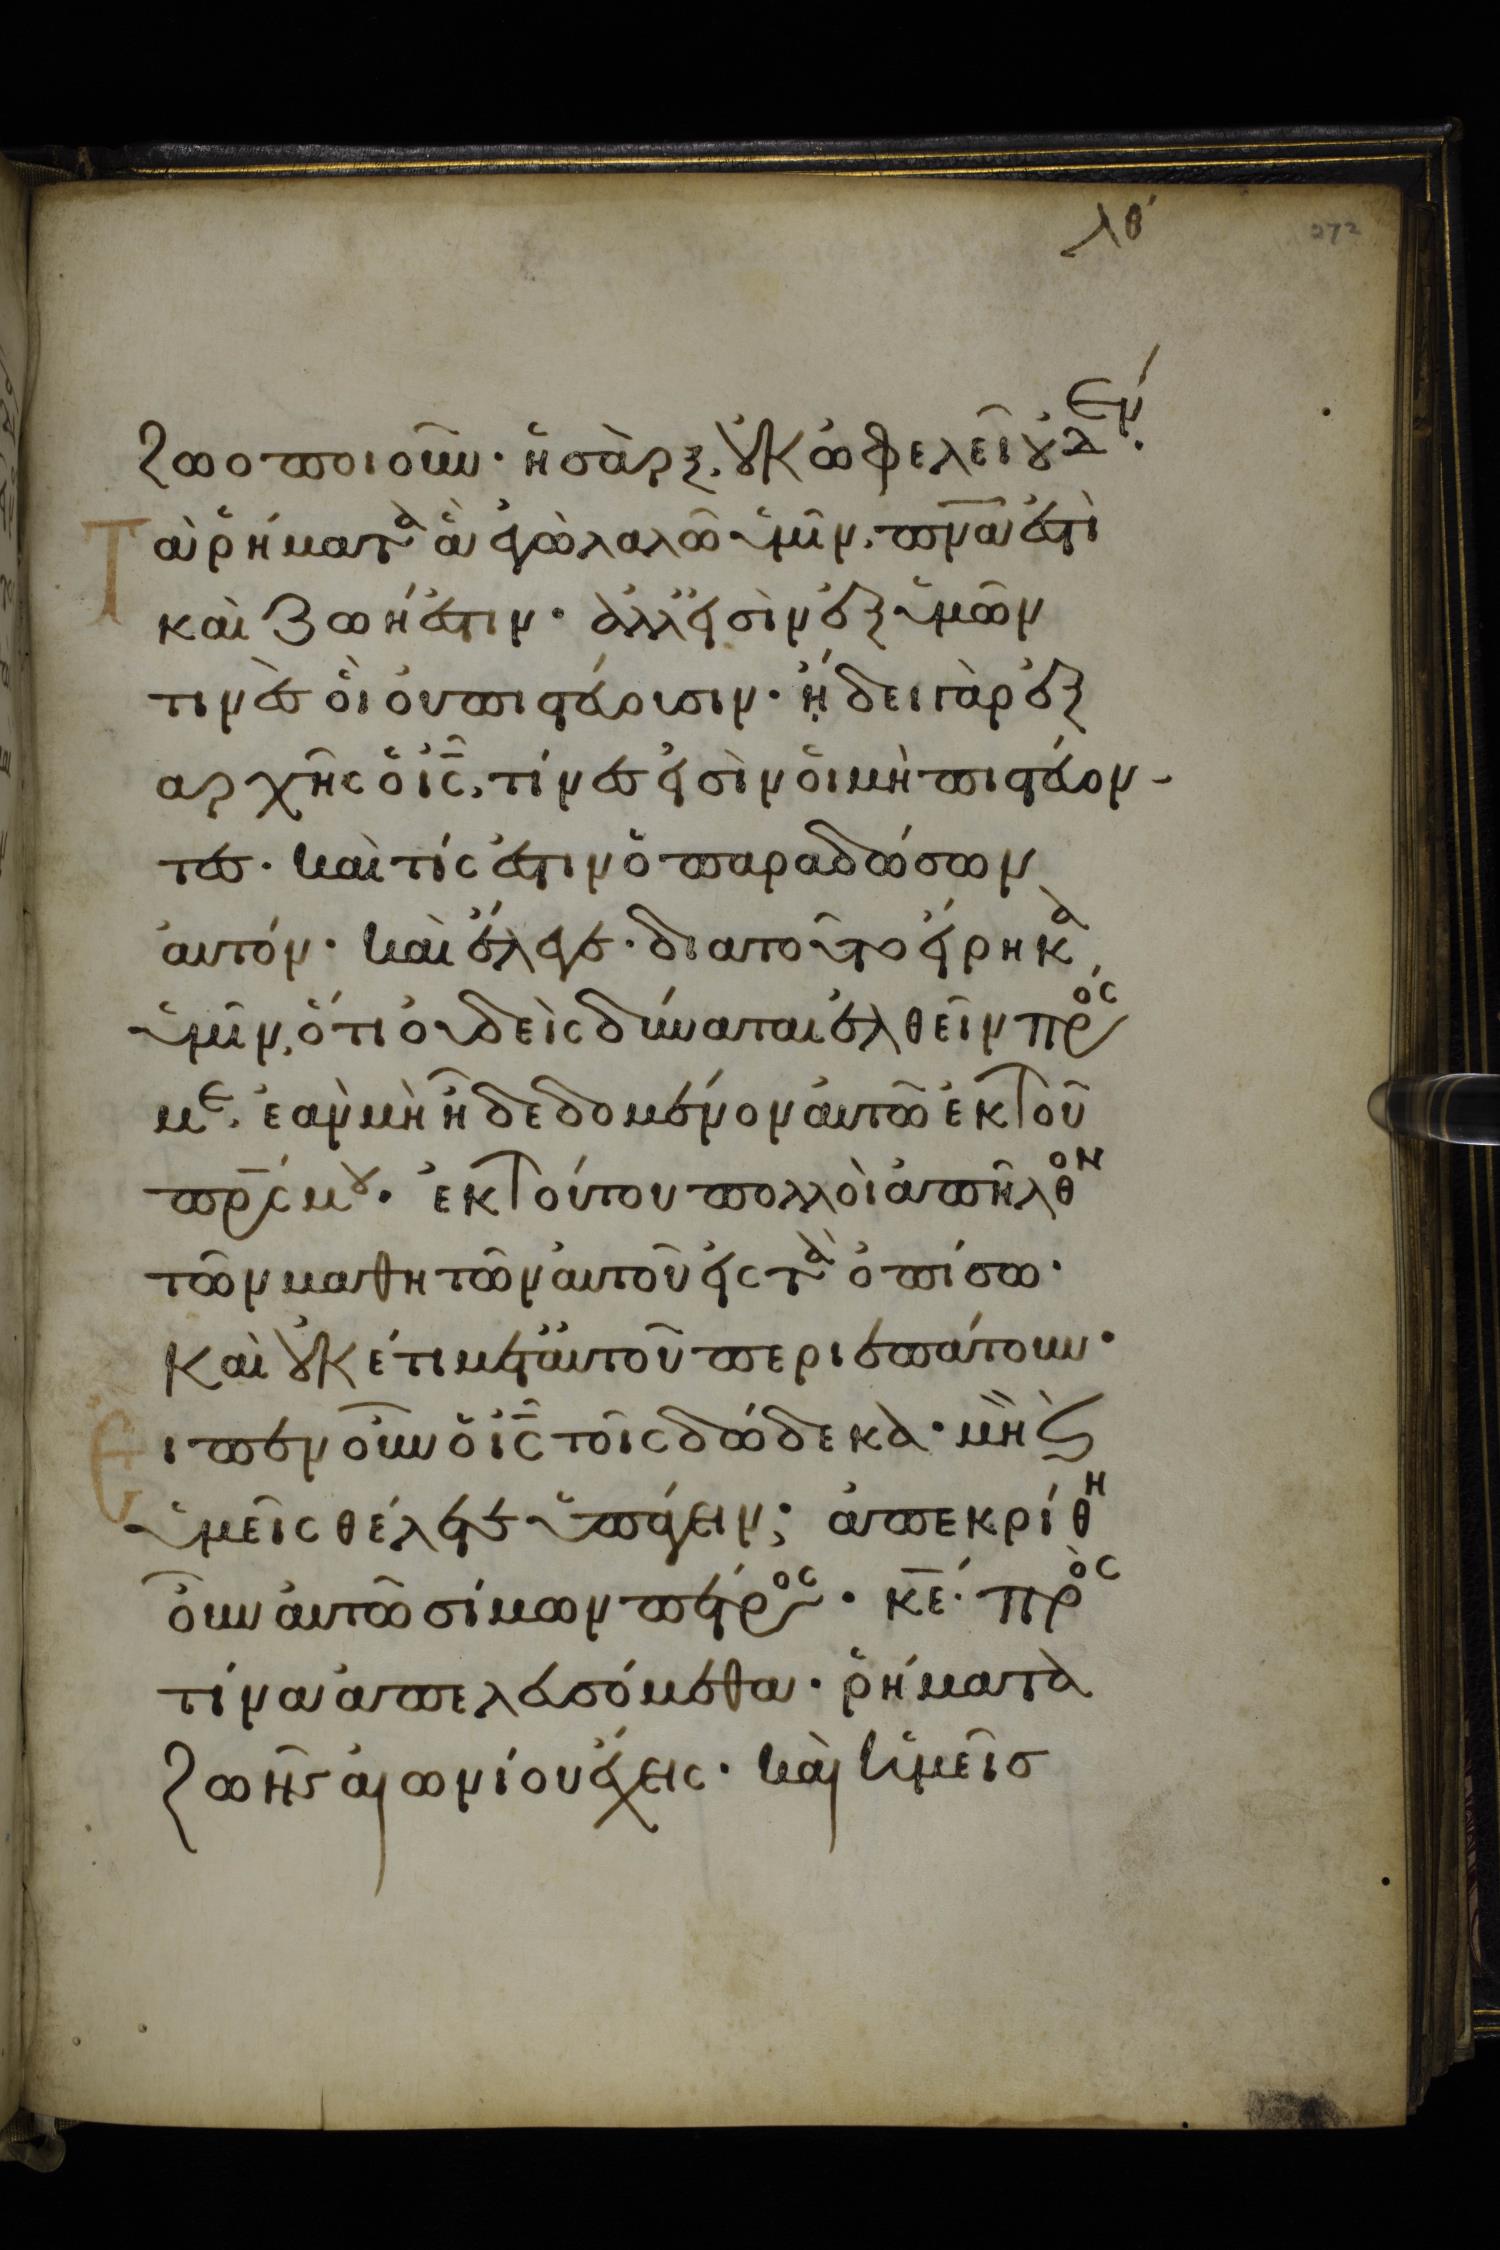 λθ´ 272
ζωοποιοῦν· ἡ σὰρξ, οὐκ ὠφελεῖ οὐδέν·
Τὰ ῥήματα ἃ ἐγὼ λαλῶ ὑμῖν, πνα̅ ἐστὶ
καὶ ζωή ἐστιν· ἀλλ' εἰσὶν ἐξ ὑμῶν
τινὲς οἳ οὐ πιστεύουσιν· ᾔδει γὰρ ἐξ
αρχῆς ὁ ις̅, τίνες εἰσὶν οἱ μὴ πιστέυον-
τες· καὶ τίς ἐστιν ὁ παραδώσων
ἀυτόν· καὶ ἔλεγε· διατοῦτο εἴρηκα
ὑμῖν, ὅτι ὀυδεὶς δύναται ἐλθεῖν πρός
με, ἐὰν μὴ ἦ δεδομένον ἀυτῶ ἐκ τοῦ
πρς̅ μου· ἐκ τούτου πολλοὶ ἀπῆλθον
τῶν μαθητῶν ἀυτοῦ εἰς τὰ ὀπίσω·
Καὶ οὐκέτι μετ' ἀυτοῦ περιεπάτουν·
Ἐιπεν οὖν ὁ ις̅ τοῖς δώδεκα· μὴ καὶ
ὑμεῖς θέλετε ὑπάγειν; ἀπεκρίθη
οὖν ἀυτῶ σίμων πέτρος· κε̅· πρὸς
τίνα ἀπελευσόμεθα· ῥήματα
ζωῆς αἰωνίου ἔχεις· καὶ ἡμεῖς